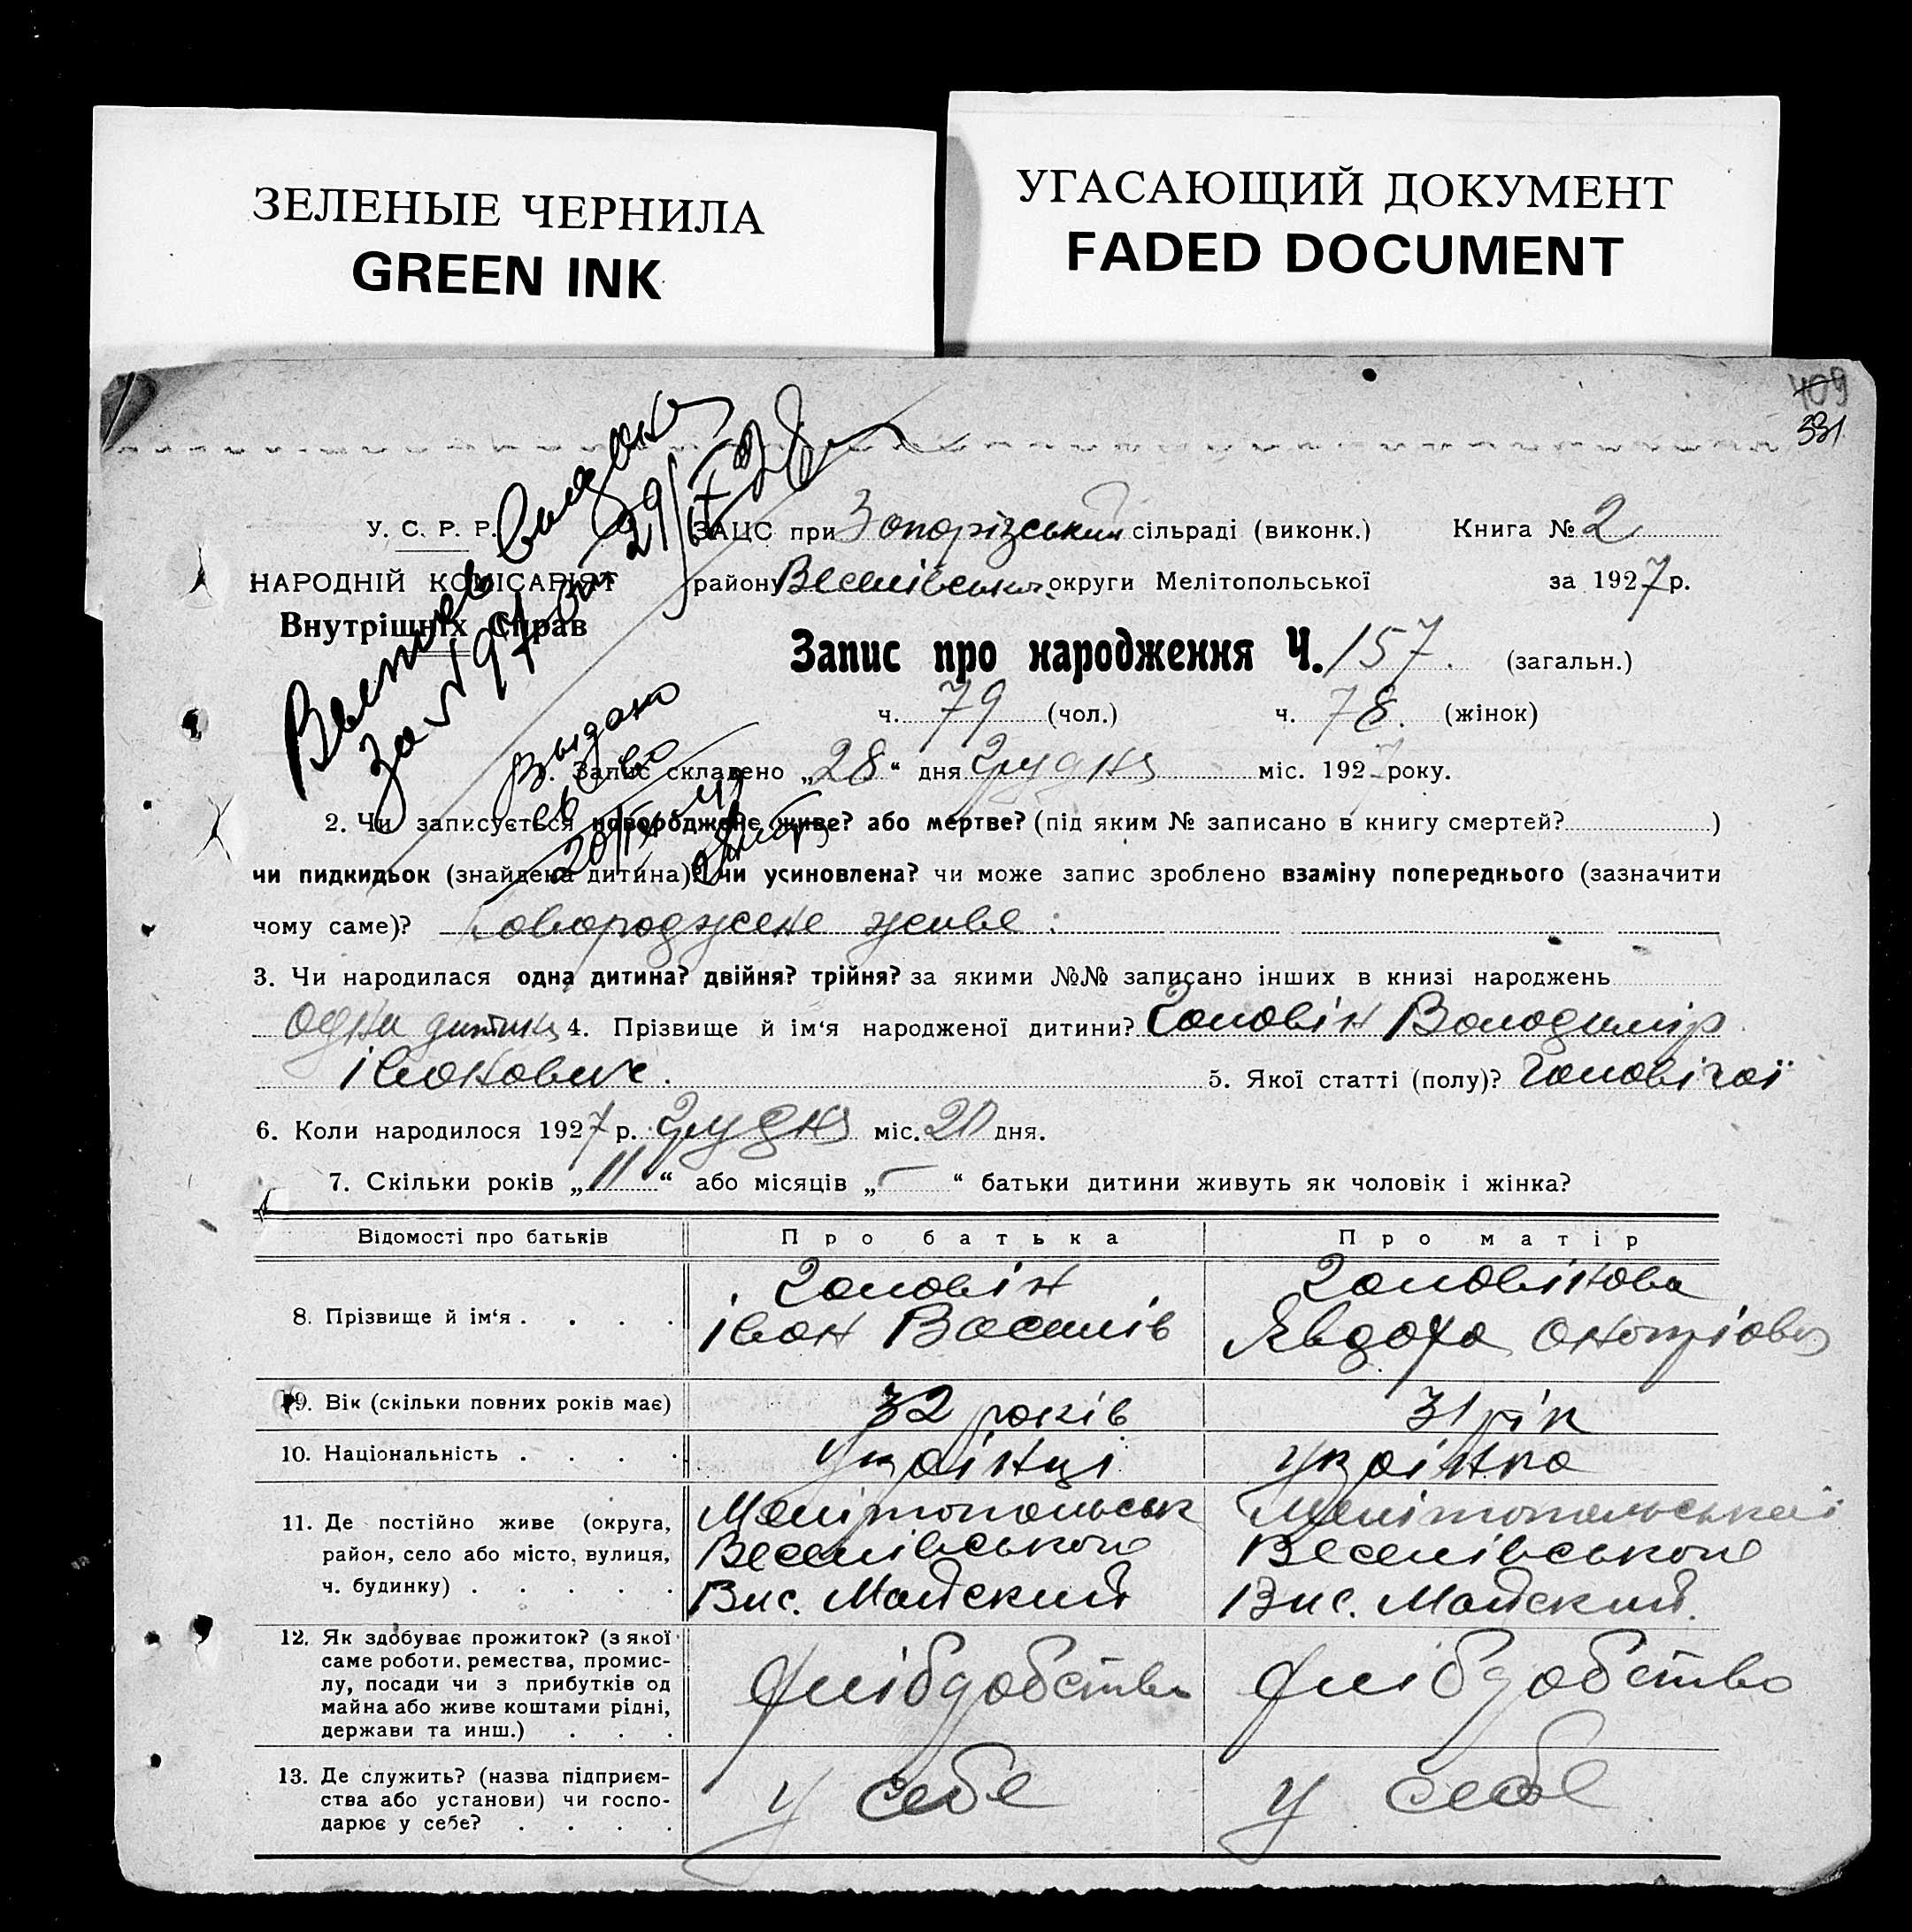 ЗЕЛЕНЫЕ ЧЕРНИЛА
GREEN INK
УГАСАЮЩИЙ ДОКУМЕНТ
FADED DOCUMENT
409
331
У. С. Р. Р.
НАРОДНІЙ КОМІСАРІЯТ
Внутрішніх Справ
ЗАЦС при Запорізський сільраді (виконк.) Книга № 2
району Веселівськ. округи Мелітопольської за 1927 р.
Запис про народження Ч. 157. (загальн.)
ч. 79 (чол.) ч. 78. (жінок)
Выдано
20/IX
29/IX 28
1. Запис складено „28“ дня грудня міс. 1927 року.
2. Чи записується новороджене живе? або мертве? (під яким № записано в книгу смертей? )
чи пидкидьок (знайдена дитина)? чи усиновлена? чи може запис зроблено взаміну попереднього (зазначити
чому саме)? новороджене живе.
3. Чи народилася одна дитина? двійня? трійня? за якими №№ записано інших в книзі народжень
Одна дитина 4. Прізвище й ім‘я народженої дитини? Головін Володимір
Іванович. 5. Якої статті (полу)? чоловічої
6. Коли народилося 1927 р. грудня міс. 20 дня.
7. Скільки років „11“ або місяців „—“ батьки дитини живуть як чоловік і жінка?
Відомості про батьків Про батька Про матір
8. Прізвище й ім‘я . . . . Головін Головінова
Іван Василів Явдоха Онопріова
9. Вік (скільки повних років має) 32 років 31 рік
10. Національність . . . . Украінці Украінка
11. Де постійно живе (округа, Мелітопольськ Мелітопольської
район, село або місто, вулиця, Веселівського Веселівського
ч. будинку) . . . . . Вис. Майский Вис. Майский.
12. Як здобуває прожиток? (з якої
саме роботи, ремества, промис-
лу, посади чи з прибутків од хлібдобство хлібдобство
майна або живе коштами рідні,
держави та инш.) . . .
13. Де служить? (назва підприєм-
ства або установи) чи госпо- у себе у себе
дарює у себе? . . . .